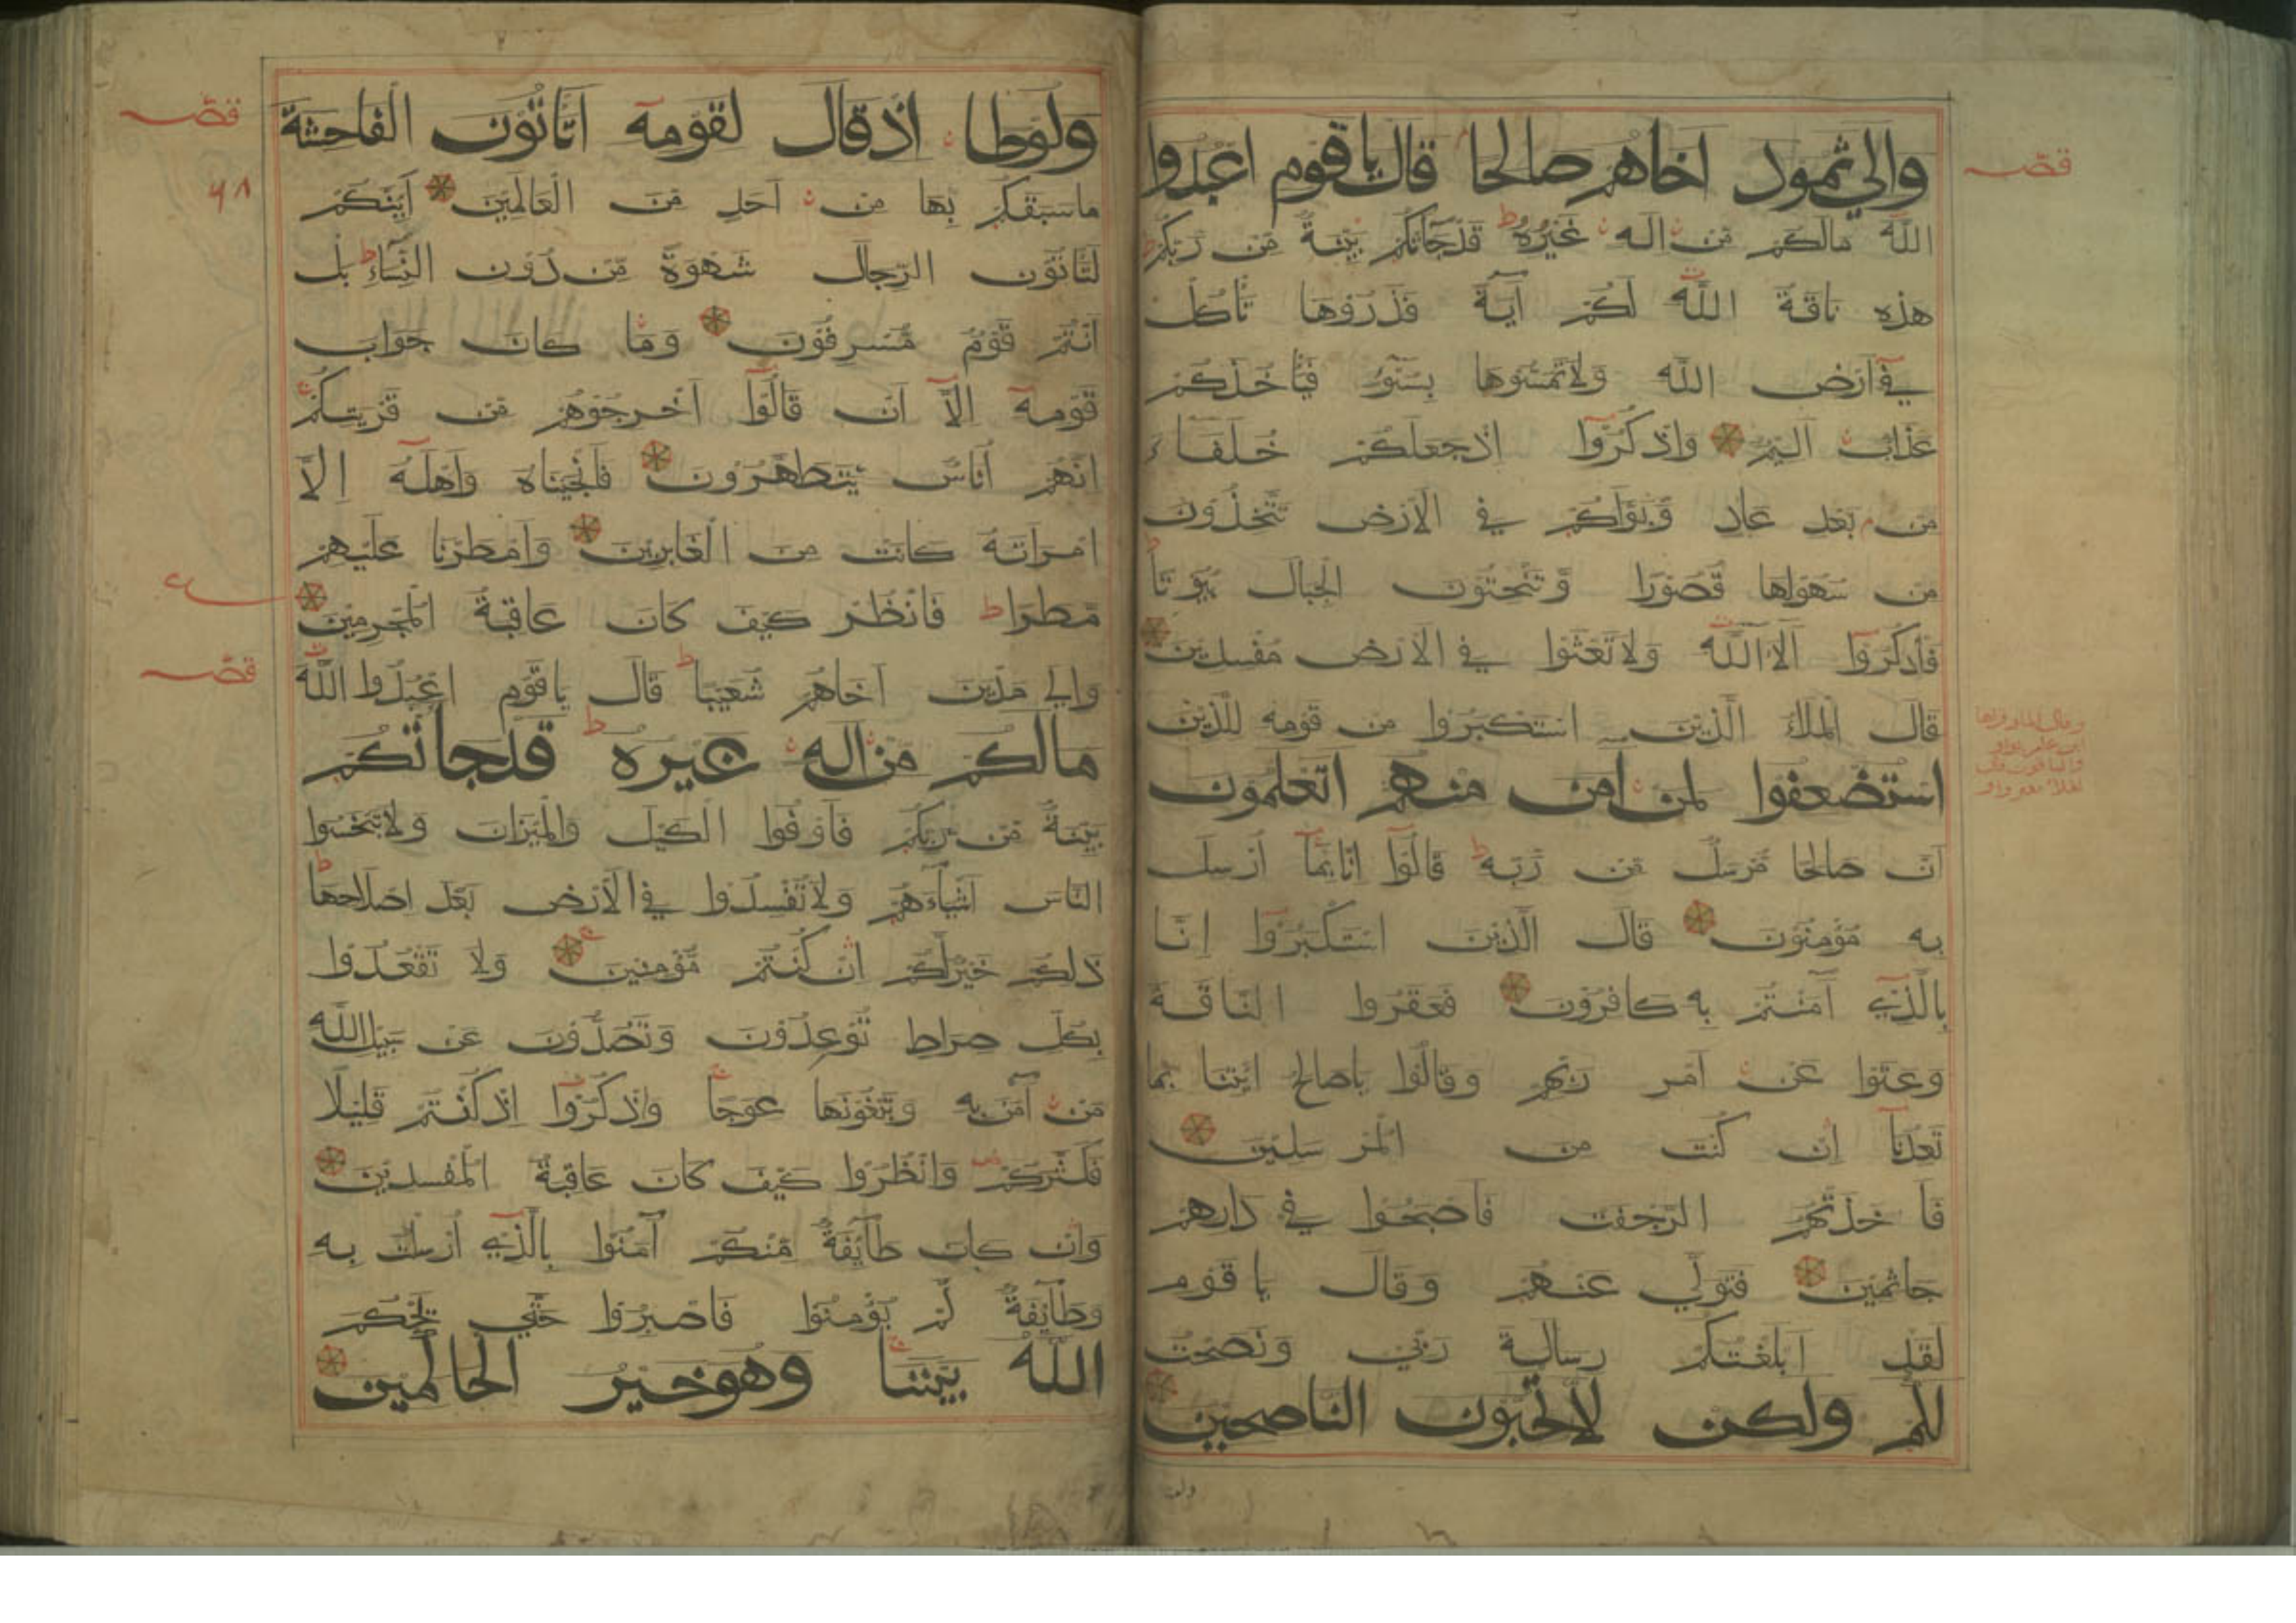 قصه
والي ثمود اخاهم صالحا قال ياقوم اعبدوا
الله مالكم من اله غيره قد جاتكم بينة من ربكم
هذه ناقة الله لكم آية فذروها تأكل
في ارض الله ولا تمسوها بسوء فيأخذكم
عذاب اليم واذكروا اذ جعلكم خلفاء
من بعد عاد وبوأكم في الارض تتخذون
من سهولها قصورا وتنحتون الجبال بيوتا
فاذكروا آلاء الله ولا تعثوا في الارض مفسدين
قال الملأ الذين استكبروا من قومه للذين
استضعفوا لمن امن منهم اتعلمون
ان صالحا مرسل من ربه قالوا انا بما ارسل
به مؤمنون قال الذين استكبروا انا
بالذي آمنتم به كافرون فعقروا الناقة
وعتوا عن امر ربهم وقالوا ياصالح ائتنا بما
تعدنا ان كنت من المرسلين
فاخذتهم الرجفت فاصبحوا في دارهم
جاثمين فتولي عنهم وقال يا قوم
لقد ابلغتكم رسالة ربي ونصحت
لكم ولكن لا تحبون الناصحين
قصه
ولوطا اذ قال لقومه اتاتون الفاحشة
٩٨
ما سبقكم بها من احد من العالمين اينكم
لتاتون الرجال شهوة من دون النساء بل
انتم قوم مسرفون وما كان جواب
قومه الا ان قالوا اخرجوهم من قريتكم
انهم اناس يتطهرون فانجيناه واهله الا
امراته كانت من الغابرين وامطرنا عليهم
مطرا فانظر كيف كان عاقبة المجرمين
قصه
والي مدين اخاهم شعيبا قال ياقوم اعبدوا الله
مالكم من اله غيره قد جاتكم
بينة من ربكم فاوفوا الكيل والميزان ولا تبخسوا
الناس اشياءهم ولا تفسدوا في الارض بعد اصلاحها
ذلكم خير لكم ان كنتم مؤمنين ولا تقعدوا
بكل صراط توعدون وتصدون عن سبيل الله
من آمن به وتبغونها عوجا واذكروا اذ كنتم قليلا
فكثركم وانظروا كيف كان عاقبة المفسدين
وان كان طآيفة منكم آمنوا بالذي ارسلت به
وطآيفة لم يؤمنوا فاصبروا حتي يحكم
الله بيننا وهو خير الحاكمين